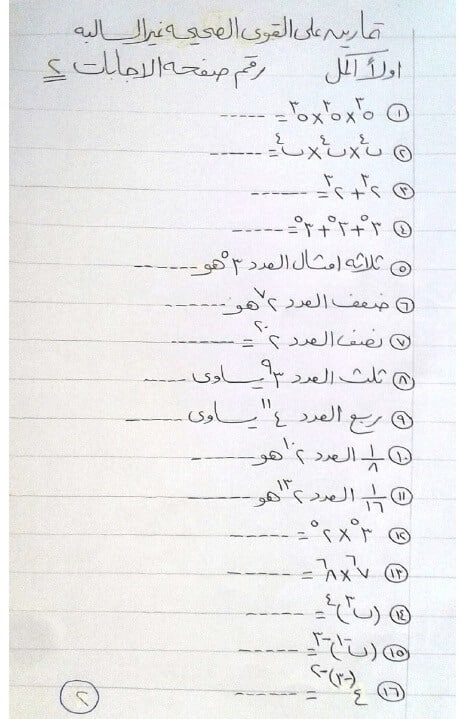 تمارين على القوى الصحيحه غير السالبه
اولاً أكمل رقم صفحه الاجابات ٢
① ٥^٣ × ٥^٣ × ٥^٣ = -----
② ب^٤ × ب^٤ × ب^٤ = ------
③ ٢^٣ + ٢^٣ = ------
④ ٣^٥ + ٣^٥ + ٣^٥ = ------
⑤ ثلاثه امثال العدد ٣^٥ هو ------
⑥ ضعف العدد ٢^٧ هو ------
⑦ نصف العدد ٢^٢٠ = ------
⑧ ثلث العدد ٣^٩ يساوى ----
⑨ ربع العدد ٤^١١ يساوى -----
⑩ ١/٨ العدد ٢^١٠ هو ------
⑪ ١/١٦ العدد ٢^١٣ هو ------
⑫ ٣^٥ × ٢^٥ = ------
⑬ ٧^٦ × ٨^٦ = ------
⑭ (ب^٣)^٤ = ------
⑮ (ب^-١)^-٣ = ------
⑯ ٤^(-٣)^-٢ = ------
٢